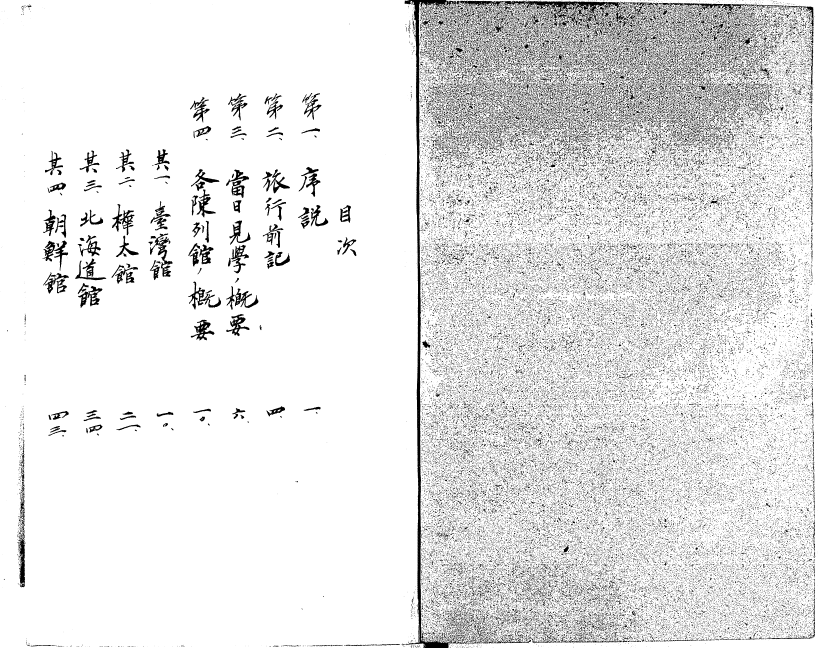 目次
第一、序説 一、
第二、旅行前記 四、
第三、當日見學ノ概要 六、
第四、各陳列館ノ概要 一〇、
其一、臺灣館 一〇、
其二、樺太館 二一、
其三、北海道館 三四、
其四、朝鮮館 四三、